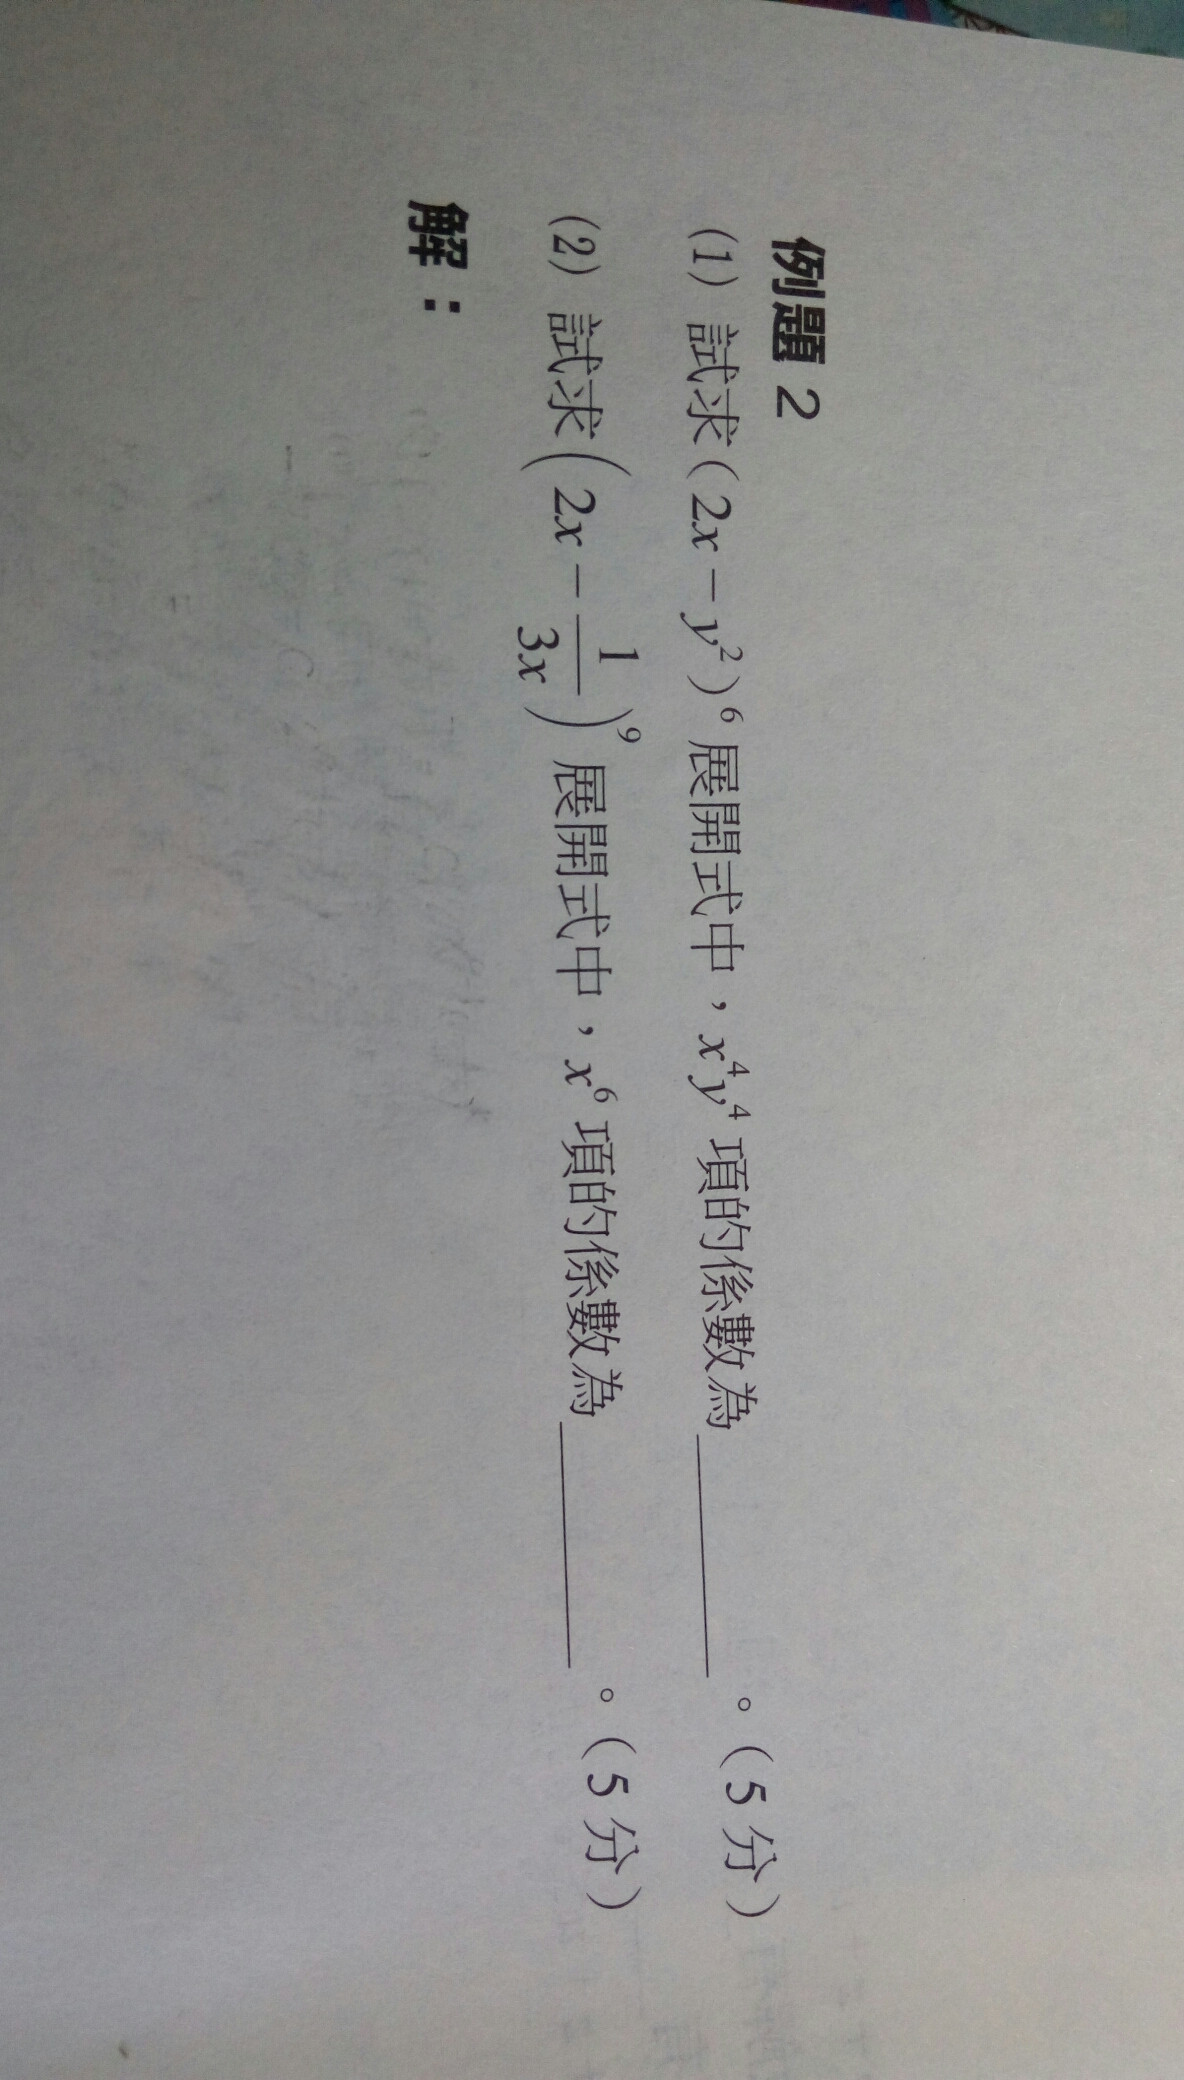 例題 2
(1) 試求(2x－y²)⁶展開式中，x⁴y⁴項的係數為________。(5分)
(2) 試求(2x－1/3x)⁹展開式中，x⁶項的係數為________。(5分)
解：